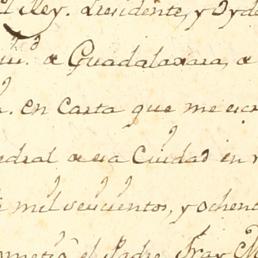 El Rey. Presidente, y Oyde
Aud.ª de Guadalaxara, de
en carta que me escri
edral de esa Ciudad en v
mil seiscientos, y ochen
ometió el Padre Fray M